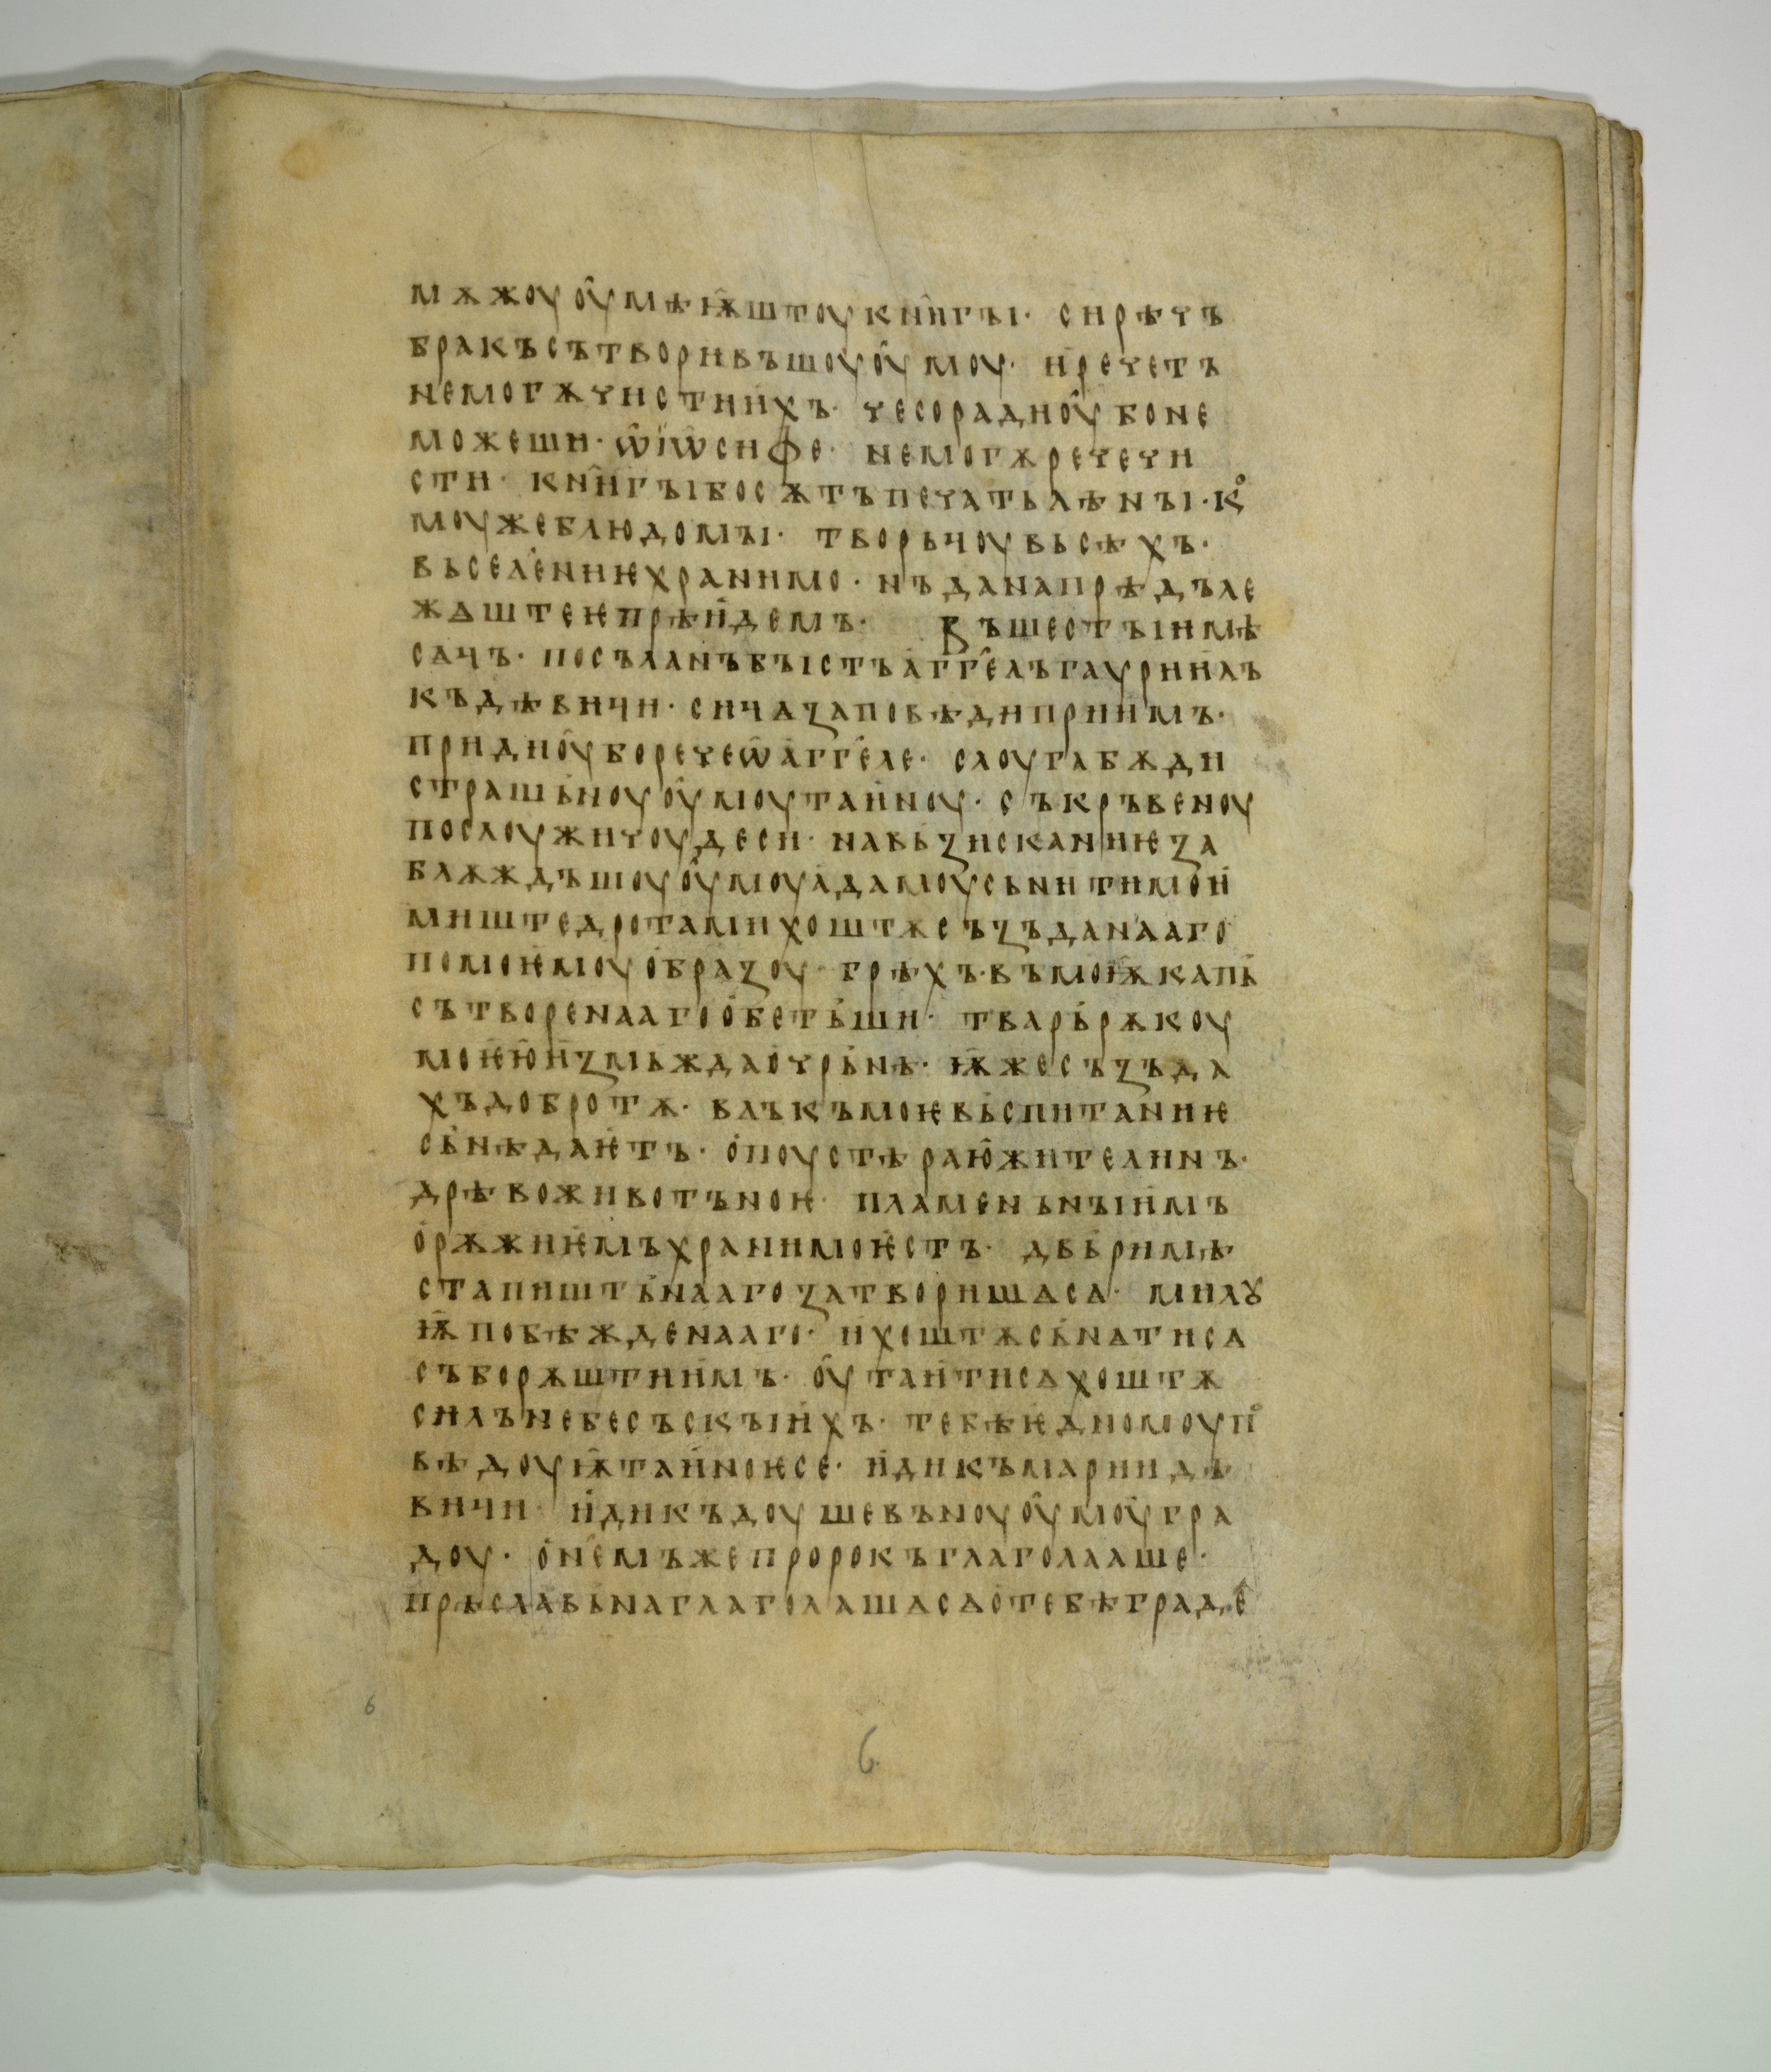 мѫжоу оумѣѭштоу книгꙑ· сирѣчъ
бракъ сътворивъшоуоумоу· и речетъ
не могѫ чисти ихъ· чесо ради оубо не
можеши· ѡ иѡсифе· не могѫ рече чи
сти· книгꙑ бо сѫтъ печатьлѣнꙑ· кⷪ
моу же блюдомꙑ· творьцоу вьсѣхъ·
вьселение хранимо· нъ да на прѣдъле
жѧштее прѣидемъ· Въ шестꙑи мѣ
сѧцъ· посъланъ бꙑстъ аггелъ гауриилъ
къ дѣвици· сицѧ заповѣди приимъ·
приди оубо рече ѡ аггеле· слоуга бѫди
страшьноуоумоу таиноу· съкръвеноу
послоужи чоудеси· на вьзискание за
блѫждъшоуоумоу адамоу сънити мои
ми штедротами хоштѫ съзъданааго
по моемоу образоу· грѣхъ въ моѭ капь
сътворенааго обетъши· тварь рѫкоу
моею измьжда очрьнѣ· ѭже съзъда
хъ добротѫ· влъкъ мое въспитание
сънѣдаетъ· опоустѣ раю жителинъ·
дрѣво животъное пламеньнꙑимъ
орѫжиемъ хранимо естъ· двьри мѣ
ста пиштьнааго затворишѧ сѧ· милꙋ
ѭ побѣжденааго· и хоштѫ сънѧти сѧ
съ борѫштиимъ· оутаити сѧ хоштѫ
силъ небесъскꙑихъ· тебѣ единомоу пⷪ
вѣдоуѭ таиное се· иди къ марии дѣ
вици· иди къ доушевъноуоумоу гра
доу· о немъже пророкъ глаголааше·
прѣславьна глаголашѧ сѧ о тебѣ граде
6
6.